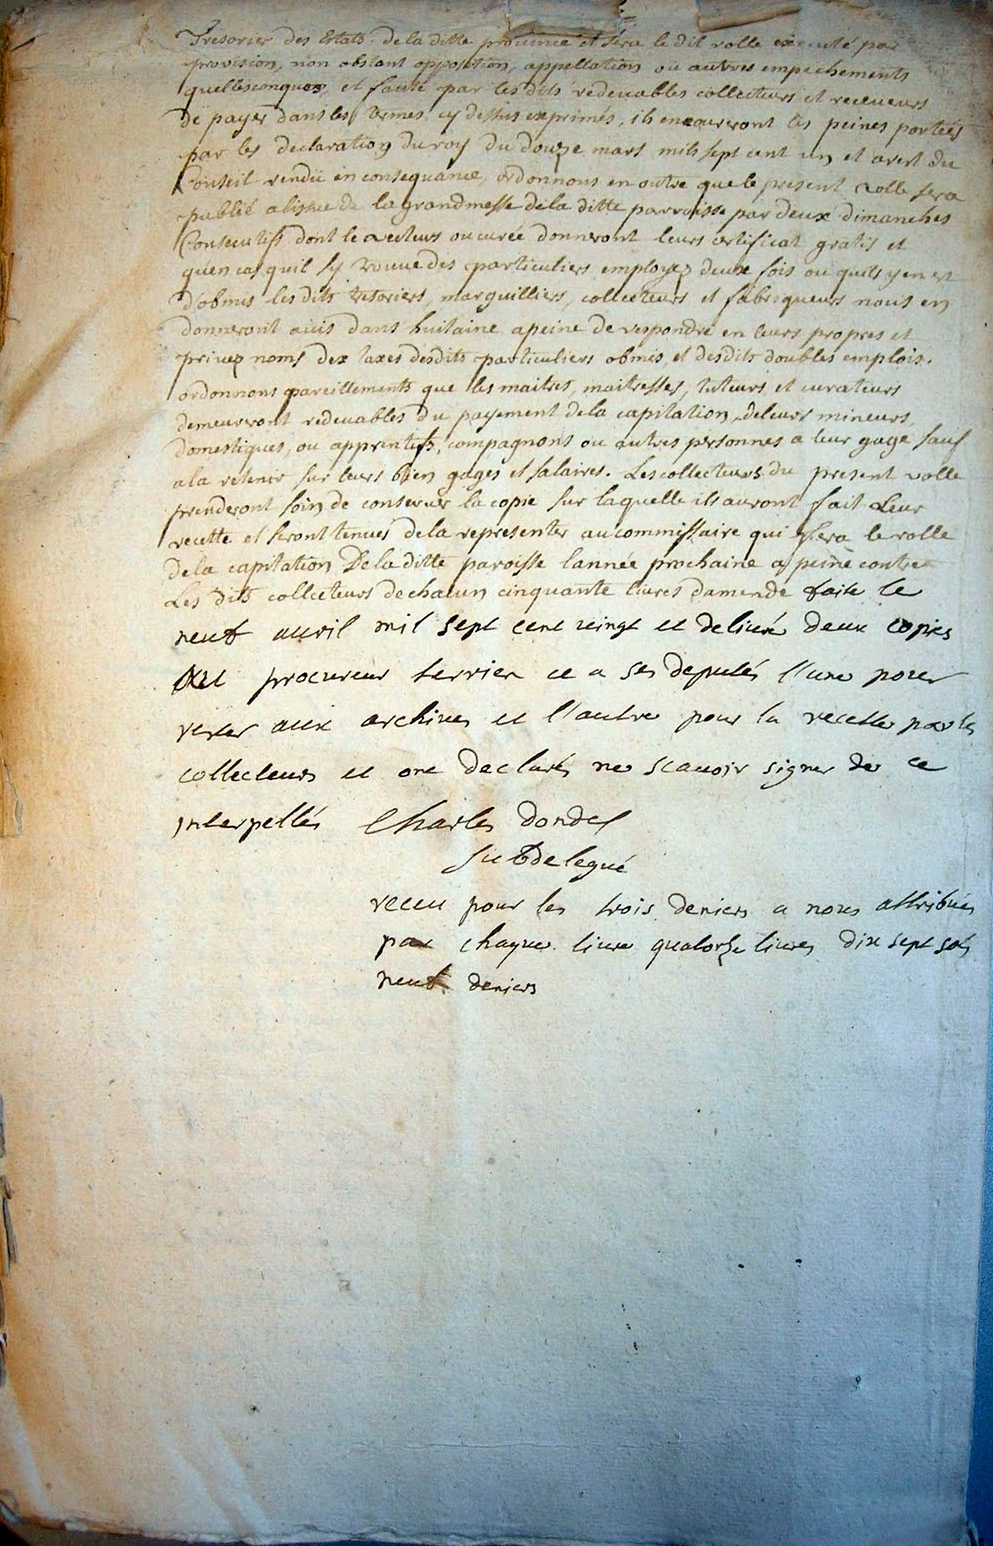 Tresorier des Estats de la ditte province et sera le dit rolle executé par
provision, non obstant opposition, appellation ou autres empechements
quellesconques, et faute par les dits redeuables collecteurs et receueurs
de payer dans les termes cy dessus exprimés, ils encoureront les peines portées
par les declaration du roy du douze mars mils sept cent un et arest du
Conseil rendü en consequance, ordonnons en outre que le present rolle sera
publié a lissue de la grandmesse de la ditte parroisse par deux dimanches
Consecutifs dont le recteurs ou curée donneront leurs certificat gratis et
quen cas quil sy trouue des particuliers employez deux fois ou quils y en est
d'obmis les dits tresoriers, marguilliers, collecteurs et fabriqueurs nous en
donneront auis dans huitaine a peine de respondre en leurs propres et
priuez noms dex taxes desdits particuliers obmis et desdits doubles emplois.
ordonnons pareillements que les maitres, maitresses, tuteurs et curateurs
demeureront redeuables du payement de la capitation de leurs mineurs,
domestiques, ou apprentifs, compagnons ou autres personnes a leur gage sauf
a la retenir sur leurs bien gages et salaires. Les collecteurs du present rolle
prenderont soin de conseruer la copie sur laquelle ils auront fait Leur
recette et seront tenues de la representer au commissaire qui fera le rolle
de la capitation De la ditte paroisse lannée prochaine a peine contre
Les dits collecteurs de chacun cinquante liures damende faite le
neuf auril mil sept cent vingt et deliuré deux copies
au procureur terrien ce a ses deputés l'une pour
rester aux archiues et l'autre pour la recette par les
collecteurs et ont declarés ne scauoir signer de ce
interpellés Charles Dondel
subdelegué
receu pour les trois deniers a nous attribués
par chaque liure quatorze liures dix sept sols
neuf deniers